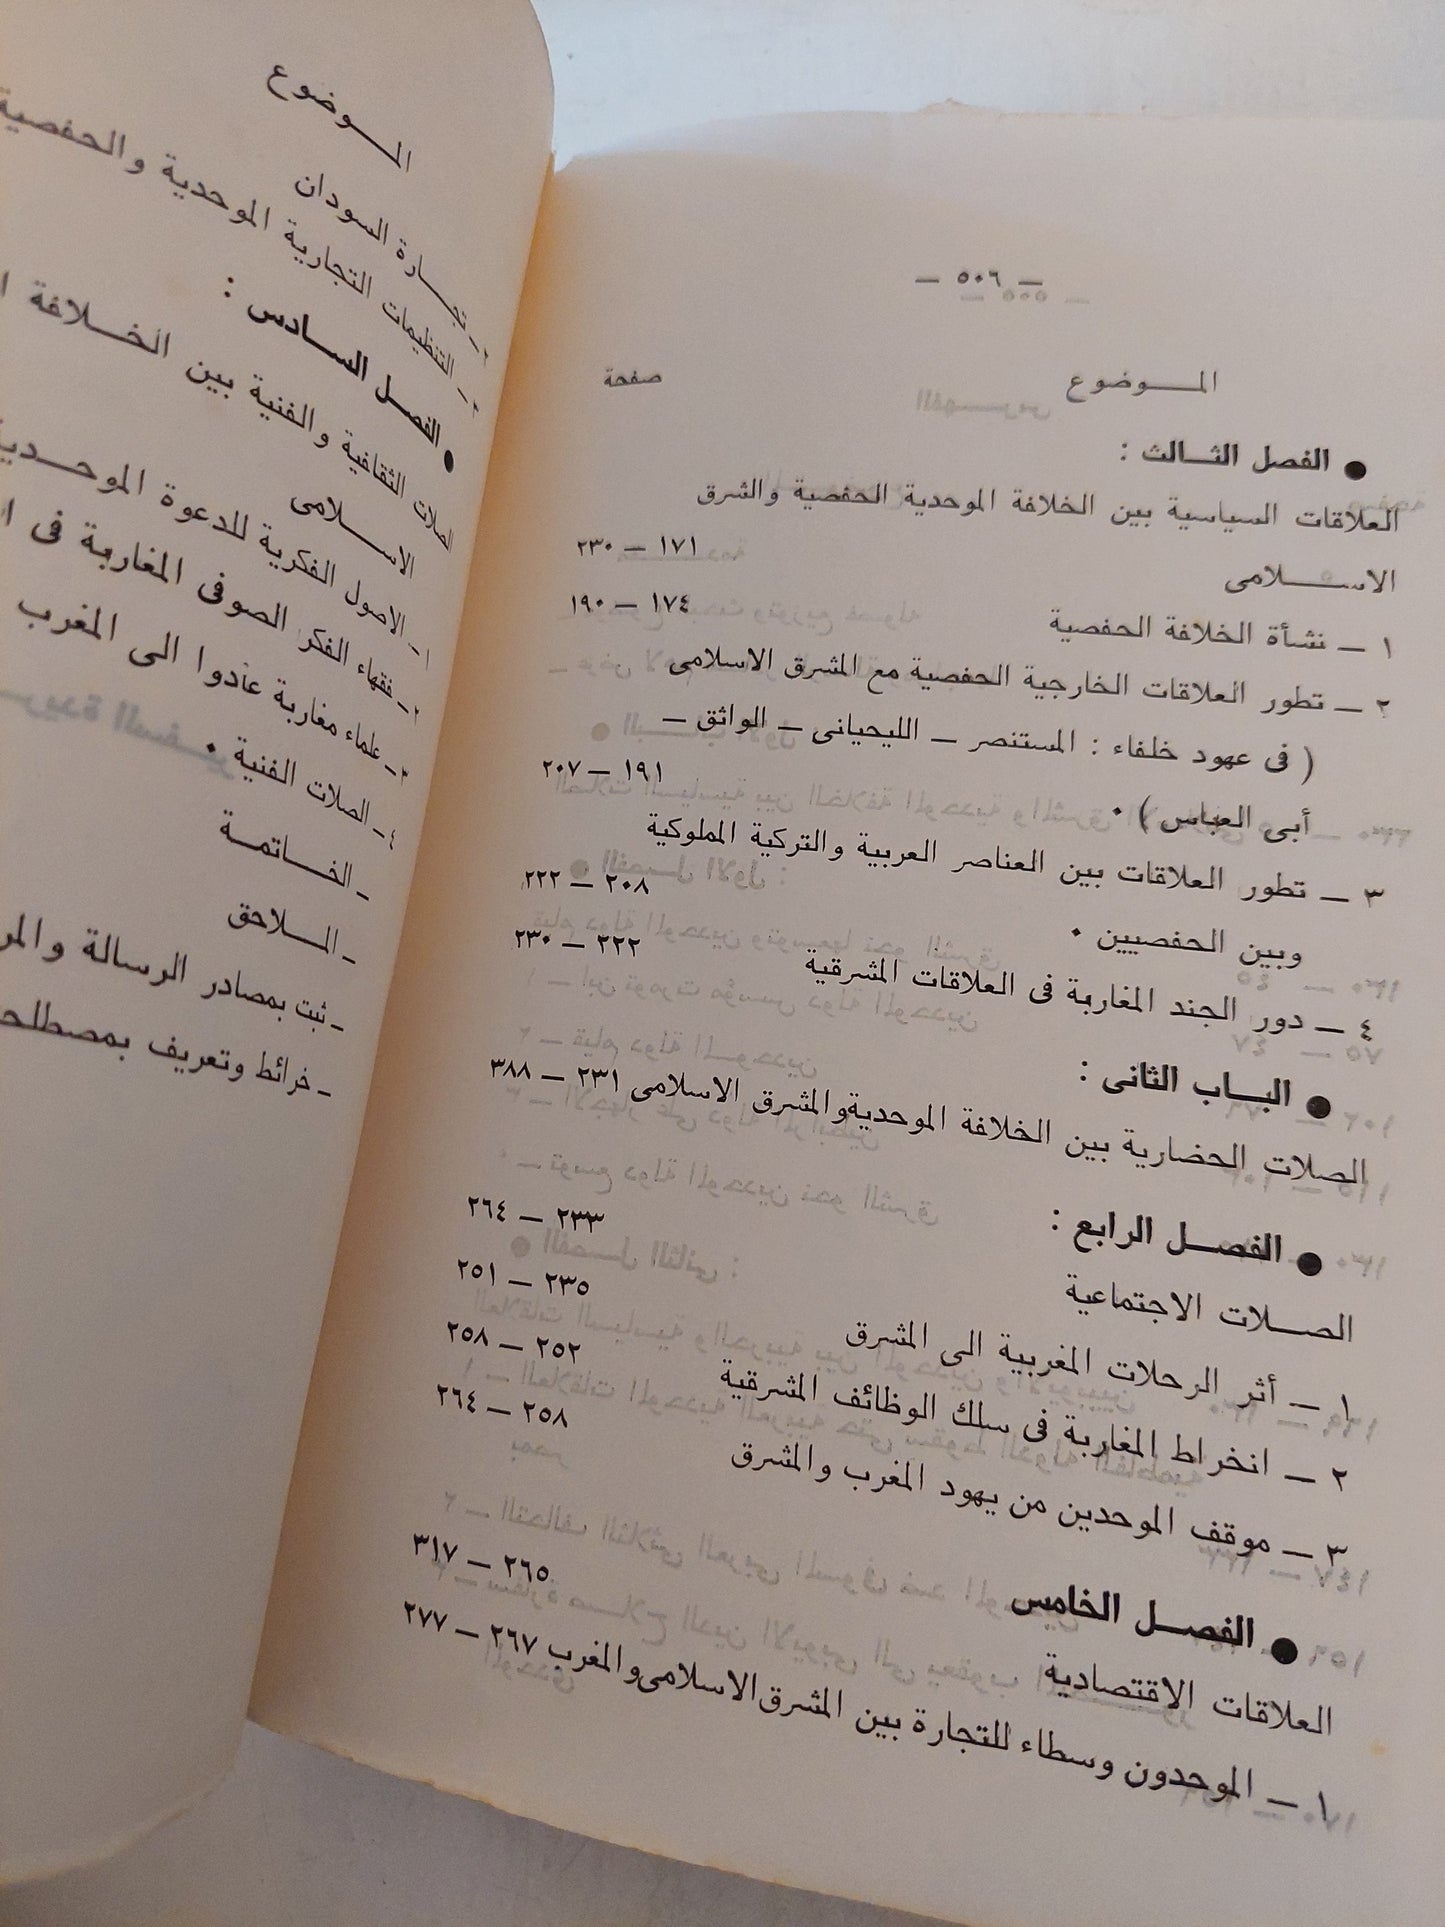 — ٥٠٦ —
المـــوضوع صفحة
● الفصل الثــالث :
العلاقات السياسية بين الخلافة الموحدية الحفصية والشرق
الاســـلامى ١٧١ — ٢٣٠
١ — نشأة الخلافة الحفصية ١٧٤ — ١٩٠
٢ — تطور العلاقات الخارجية الحفصية مع المشرق الاسلامى
( فى عهود خلفاء : المستنصر — الليحيانى — الواثق —
أبى العباس ) ٠ ١٩١ — ٢٠٧
٣ — تطور العلاقات بين العناصر العربية والتركية المملوكية
وبين الحفصيين ٠ ٢٠٨ — ٢٢٢
٤ — دور الجند المغاربة فى العلاقات المشرقية ٢٢٢ — ٢٣٠
● البــاب الثانى :
الصلات الحضارية بين الخلافة الموحدية والمشرق الاسلامى ٢٣١ — ٣٨٨
● الفصــل الرابع :
الصــلات الاجتماعية ٢٣٣ — ٢٦٤
١ — أثر الرحلات المغربية الى المشرق ٢٣٥ — ٢٥١
٢ — انخراط المغاربة فى سلك الوظائف المشرقية ٢٥٢ — ٢٥٨
٣ — موقف الموحدين من يهود المغرب والمشرق ٢٥٨ — ٢٦٤
● الفصــل الخامس
العلاقات الاقتصادية ٢٦٥ — ٣١٧
١ — الموحدون وسطاء للتجارة بين المشرق الاسلامى والمغرب ٢٦٧ — ٢٧٧
المـــوضوع
٢ — تجـــارة السودان
٣ — التنظيمات التجارية الموحدية والحفصية
● الفصــل الســادس :
الصلات الثقافية والفنية بين الخــلافة
الاســـلامى
١ — الاصول الفكرية للدعوة الموحــدية
٢ — فقهاء الفكر الصوفى المغاربة فى
٣ — علماء مغاربة عادوا الى المغرب
٤ — الصلات الفنية ٠
— الخــاتمــة
— المــلاحق
— ثبت بمصادر الرسالة
— خرائط وتعريف